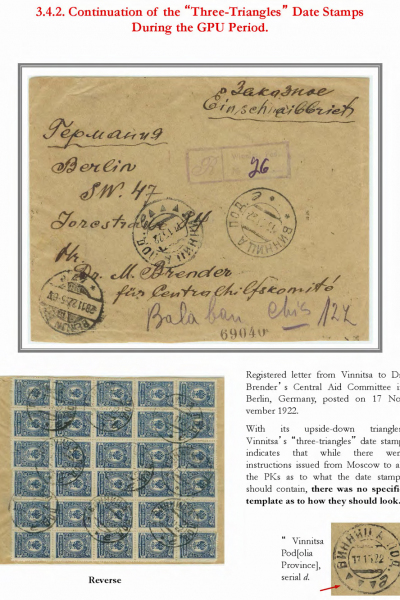 3.4.2. Continuation of the “Three-Triangles” Date Stamps
During the GPU Period.
Заказное
Einschreibbrief
Германия
Berlin
SW. 47
R 26
ВИННИЦА ПОД.
Dr. M. Brender
für Centralhilfskomitó
Balaban
122
69040
Registered letter from Vinnitsa to Dr
Brender’s Central Aid Committee i
Berlin, Germany, posted on 17 No
vember 1922.
With its upside-down triangles
Vinnitsa’s “three-triangles” date stamp
indicates that while there wer
instructions issued from Moscow to a
the PKs as to what the date stamp
should contain, there was no specifi
template as to how they should look.
“ Vinnitsa
Pod[olia
Province],
serial d.
ВИННИЦА ПОД.
17.11.22
Reverse